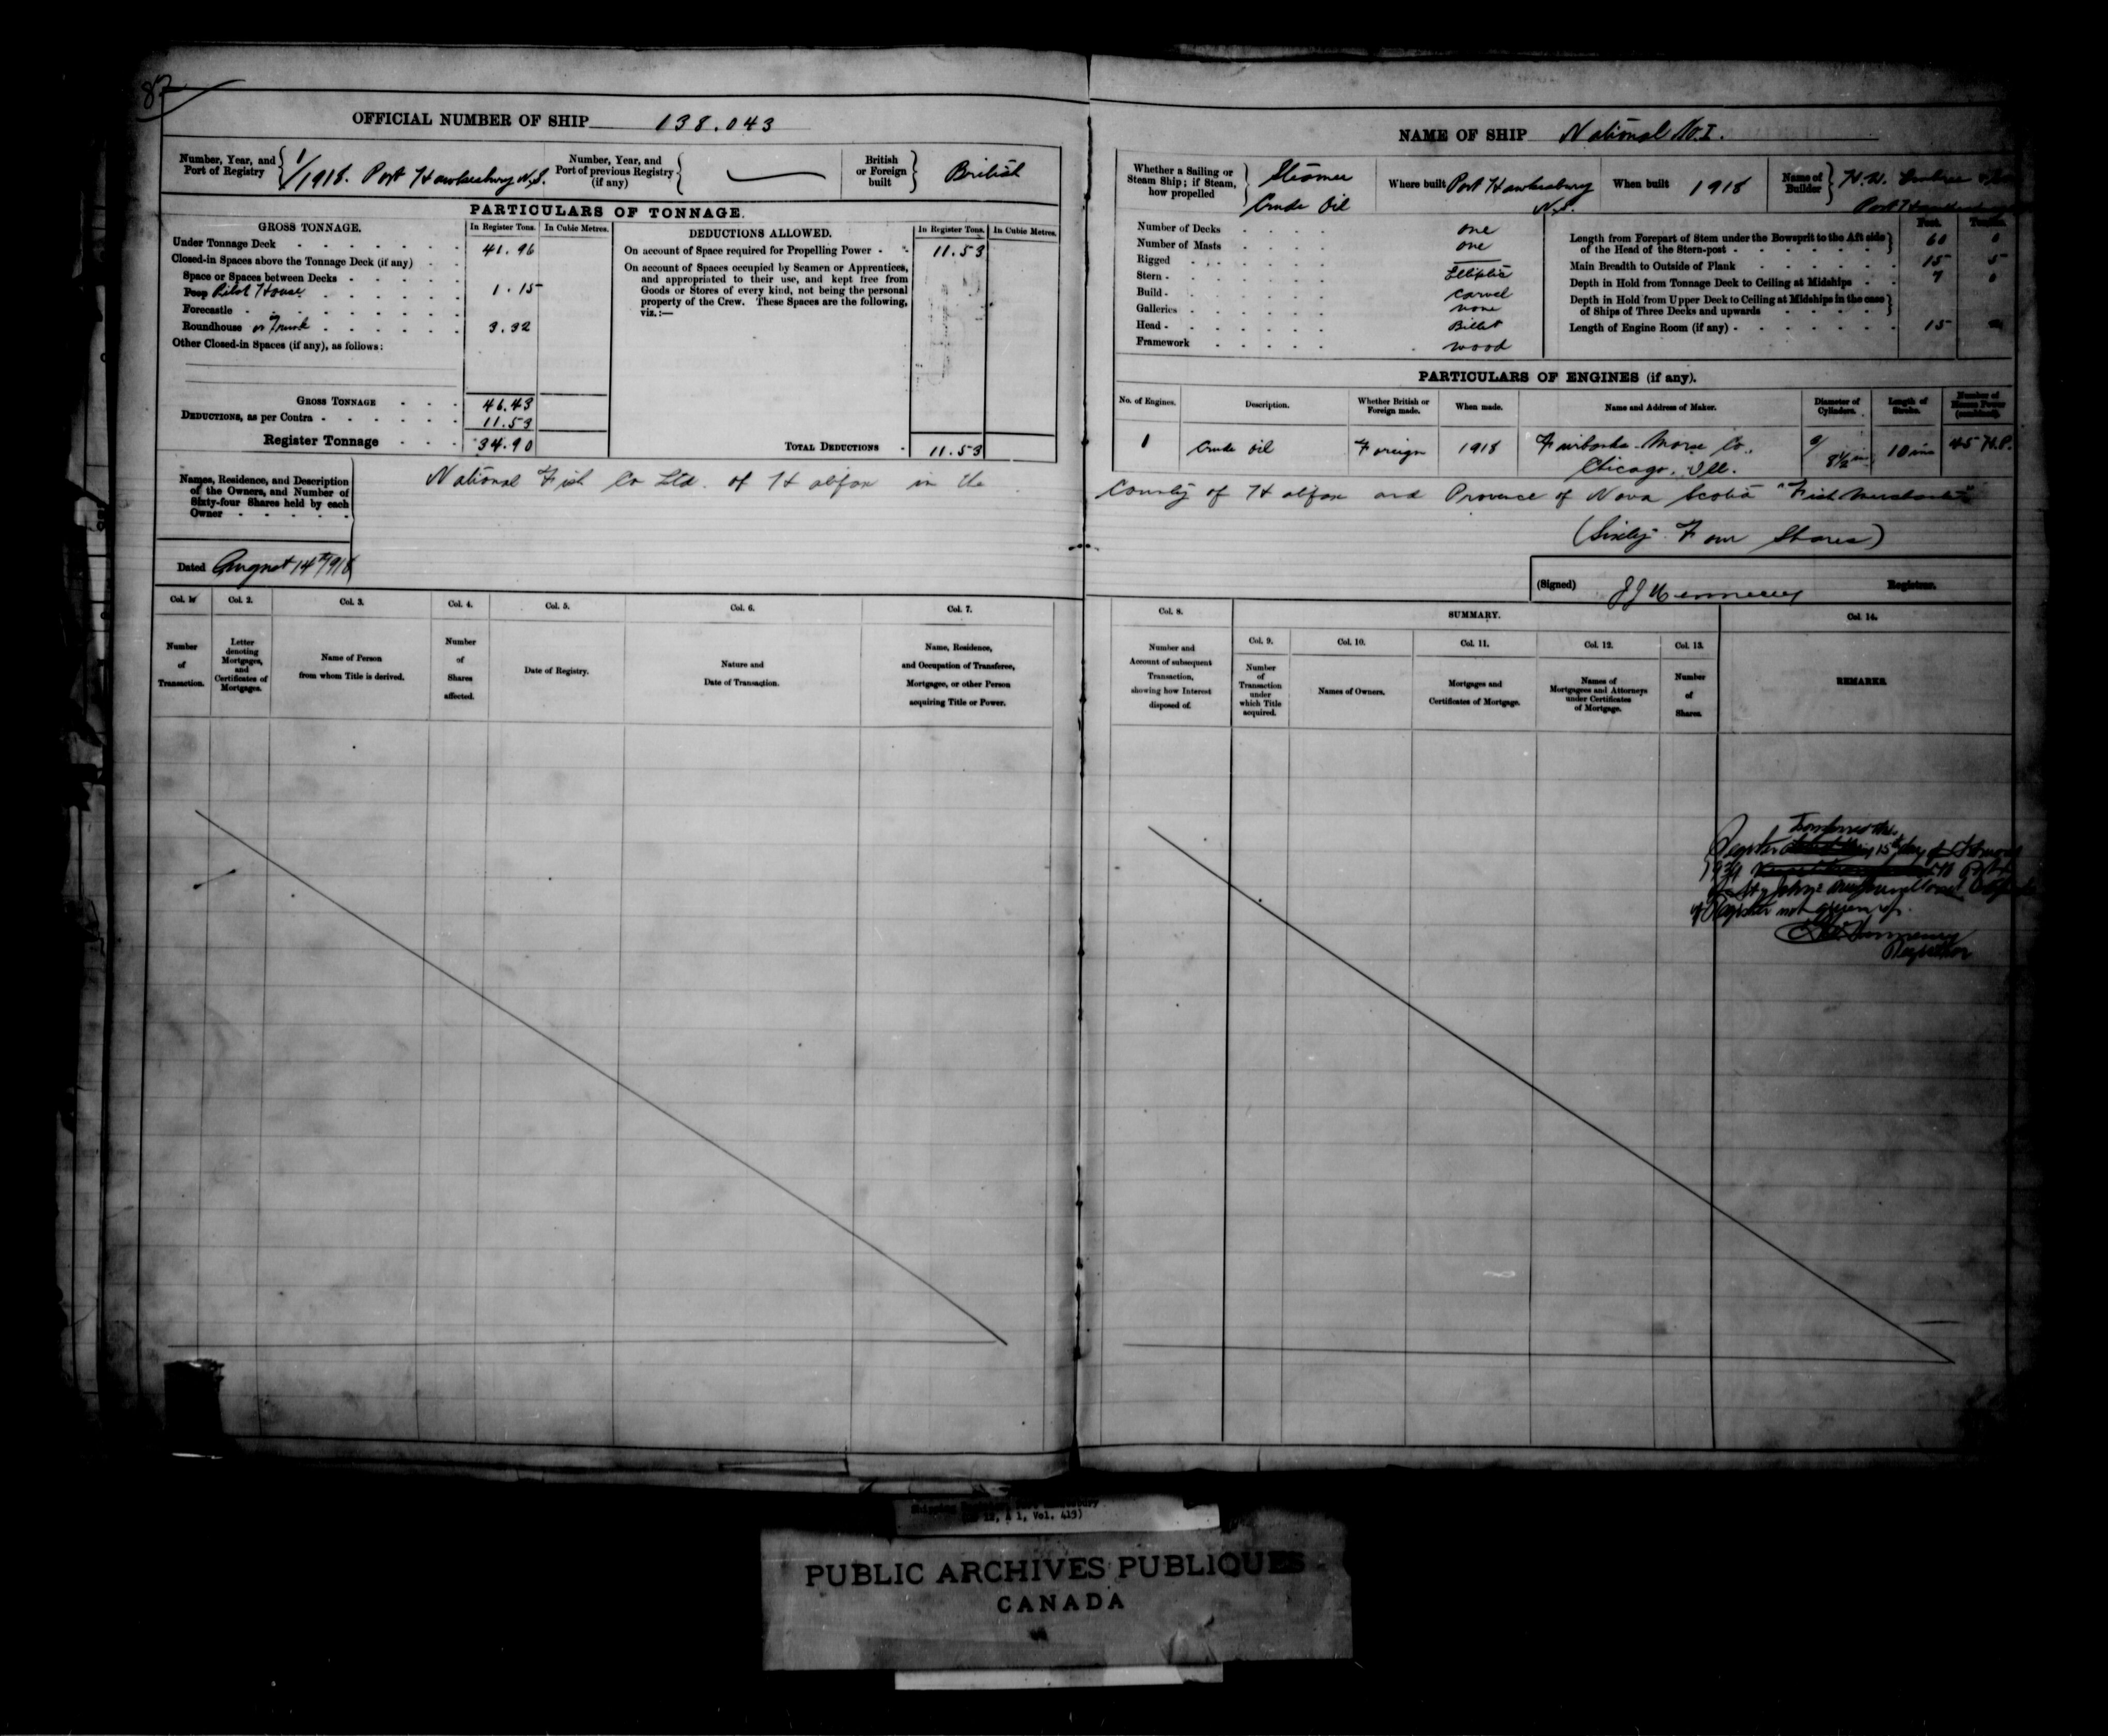 82
OFFICIAL NUMBER OF SHIP 138.043
Number, Year, and Port of Registry 1/1918. Port Hawkesbury N.S.
Number, Year, and Port of previous Registry (if any)
British or Foreign built British
PARTICULARS OF TONNAGE.
GROSS TONNAGE. In Register Tons. In Cubic Metres.
Under Tonnage Deck 41.96
Closed-in Spaces above the Tonnage Deck (if any)
Space or Spaces between Decks
Poop Pilot House 1.15
Forecastle
Roundhouse or Trunk 3.32
Other Closed-in Spaces (if any), as follows:
GROSS TONNAGE 46.43
DEDUCTIONS, as per Contra 11.53
Register Tonnage 34.90
DEDUCTIONS ALLOWED. In Register Tons. In Cubic Metres.
On account of Space required for Propelling Power 11.53
On account of Spaces occupied by Seamen or Apprentices,
and appropriated to their use, and kept free from
Goods or Stores of every kind, not being the personal
property of the Crew. These Spaces are the following,
viz.:—
TOTAL DEDUCTIONS 11.53
Names, Residence, and Description
of the Owners, and Number of
Sixty-four Shares held by each
Owner
National Fish Co Ltd. of Halifax in the
Dated August 14th 1918
Col. 1. Col. 2. Col. 3. Col. 4. Col. 5. Col. 6. Col. 7.
Number of Transaction.
Letter denoting Mortgages, and Certificates of Mortgages.
Name of Person from whom Title is derived.
Number of Shares affected.
Date of Registry.
Nature and Date of Transaction.
Name, Residence, and Occupation of Transferee, Mortgagee, or other Person acquiring Title or Power.
NAME OF SHIP National No. I.
Whether a Sailing or Steam Ship; if Steam, how propelled Steamer Crude Oil
Where built Port Hawkesbury N.S.
When built 1918
Name of Builder H.W. Port
Number of Decks one
Number of Masts one
Rigged
Stern Elliptic
Build Carvel
Galleries none
Head Billet
Framework wood
Feet. Tenths.
Length from Forepart of Stem under the Bowsprit to the Aft side of the Head of the Stern-post 60 0
Main Breadth to Outside of Plank 15 5
Depth in Hold from Tonnage Deck to Ceiling at Midships 7 0
Depth in Hold from Upper Deck to Ceiling at Midships in the case of Ships of Three Decks and upwards
Length of Engine Room (if any) 15
PARTICULARS OF ENGINES (if any).
No. of Engines. Description. Whether British or Foreign made. When made. Name and Address of Maker. Diameter of Cylinders. Length of Stroke. Number of Horse Power (combined).
1 Crude oil Foreign 1918 Fairbanks Morse Co., Chicago, Ill. 8½ in 10 ins 45 H.P.
County of Halifax and Province of Nova Scotia "Fish Merchants"
(Sixty Four Shares)
(Signed) Registrar.
Col. 8. SUMMARY. Col. 14.
Col. 9. Col. 10. Col. 11. Col. 12. Col. 13.
Number and Account of subsequent Transaction, showing how Interest disposed of.
Number of Transaction under which Title acquired.
Names of Owners.
Mortgages and Certificates of Mortgage.
Names of Mortgagees and Attorneys under Certificates of Mortgage.
Number of Shares.
REMARKS.
Register 15th day of
of Register not given up.
Registrar
Vol. 413)
PUBLIC ARCHIVES PUBLIQUES
CANADA